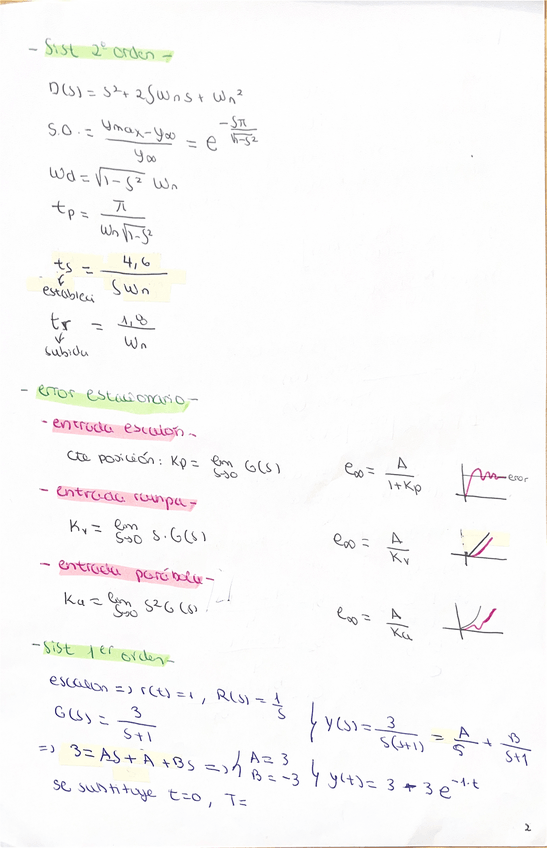 - Sist 2º orden -
D(s) = s² + 2ζWn s + Wn²
S.O. = (ymax - y∞) / y∞ = e^(-ζπ / √(1-ζ²))
Wd = √(1-ζ²) Wn
tp = π / (Wn √(1-ζ²))
ts = 4,6 / (ζWn)
↓
tr = 1,8 / Wn
↓
subida
- error estacionario -
- entrada escalón -
Cte posición: Kp = lim s→0 G(s) e∞ = A / (1+Kp) error
- entrada rampa -
Kv = lim s→0 s·G(s) e∞ = A / Kv
- entrada parábola -
Ka = lim s→0 s² G(s) e∞ = A / Ka
- Sist 1er orden -
escalon => r(t) = 1, R(s) = 1/s
G(s) = 3 / (s+1) } Y(s) = 3 / (s(s+1)) = A/s + B/(s+1)
=> 3 = As + A + Bs => { A = 3 B = -3 } y(t) = 3 - 3 e^(-1·t)
se sustituye t=0, T=
2